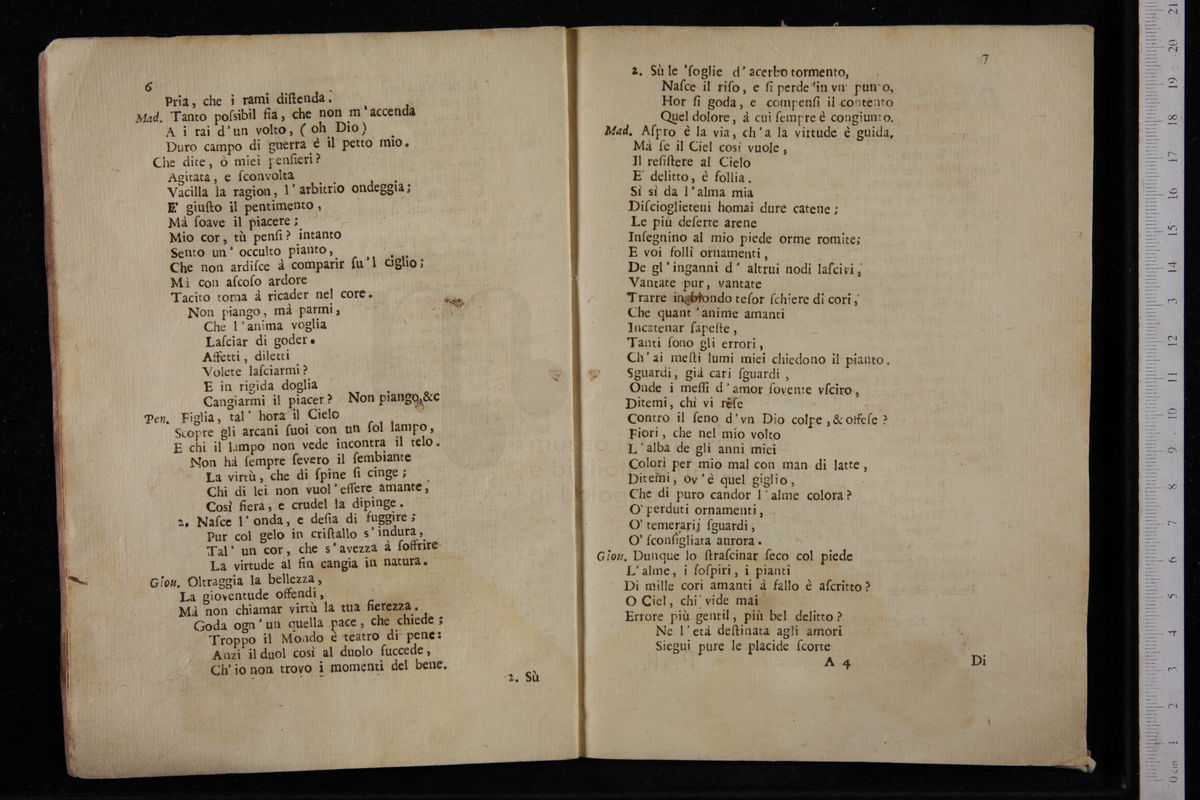 6
Pria, che i rami diſtenda.
Mad. Tanto poſsibil fia, che non m'accenda
A i rai d'un volto, ( oh Dio )
Duro campo di guerra è il petto mio.
Che dite, ò miei penſieri?
Agitata, e ſconvolta
Vacilla la ragion, l'arbitrio ondeggia;
E' giuſto il pentimento,
Mà ſoave il piacere;
Mio cor, tù penſi? intanto
Sento un' occulto pianto,
Che non ardiſce à comparir ſu'l ciglio;
Mi con aſcoſo ardore
Tacito torna à ricader nel core.
Non piango, mà parmi,
Che l'anima voglia
Laſciar di goder.
Affetti, diletti
Volete laſciarmi?
E in rigida doglia
Cangiarmi il piacer? Non piango,&c
Pen. Figlia, tal' hora il Cielo
Scopre gli arcani ſuoi con un ſol lampo,
E chi il lampo non vede incontra il telo.
Non hà ſempre ſevero il ſembiante
La virtù, che di ſpine ſi cinge;
Chi di lei non vuol'eſſere amante,
Così fiera, e crudel la dipinge.
2. Naſce l'onda, e deſia di fuggire;
Pur col gelo in criſtallo s'indura,
Tal' un cor, che s'avezza à ſoffrire
La virtude al fin cangia in natura.
Giou. Oltraggia la bellezza,
La gioventude offendi,
Mà non chiamar virtù la tua fierezza.
Goda ogn'un quella pace, che chiede;
Troppo il Mondo è teatro di pene:
Anzi il duol così al duolo ſuccede,
Ch'io non trovo i momenti del bene.
2. Sù
7
2. Sù le 'ſoglie d'acerbo tormento,
Naſce il riſo, e ſi perde in vn' punto,
Hor ſi goda, e compenſi il contento
Quel dolore, à cui ſempre è congiunto.
Mad. Aſpro è la via, ch'a la virtude è guida,
Mà ſe il Ciel così vuole,
Il reſiſtere al Cielo
E' delitto, è follia.
Sì sì da l'alma mia
Diſcioglietevi homai dure catene;
Le più deſerte arene
Inſegnino al mio piede orme romite;
E voi folli ornamenti,
De gl'inganni d' altrui nodi laſcivi,
Vantate pur, vantate
Trarre in biondo teſor ſchiere di cori,
Che quant'anime amanti
Incatenar ſapeſte,
Tanti ſono gli errori,
Ch'ai meſti lumi miei chiedono il pianto.
Sguardi, già cari ſguardi,
Onde i meſſi d'amor ſovente vſciro,
Ditemi, chi vi reſe
Contro il ſeno d'vn Dio colpe, & offeſe?
Fiori, che nel mio volto
L'alba de gli anni miei
Colorì per mio mal con man di latte,
Ditemi, ov'è quel giglio,
Che di puro candor l'alme colora?
O' perduti ornamenti,
O' temerarij ſguardi,
O' ſconſigliata aurora.
Giou. Dunque lo ſtraſcinar ſeco col piede
L'alme, i ſoſpiri, i pianti
Di mille cori amanti à fallo è aſcritto?
O Ciel, chi vide mai
Errore più gentil, più bel delitto?
Ne l'età deſtinata agli amori
Siegui pure le placide ſcorte
A 4
Di